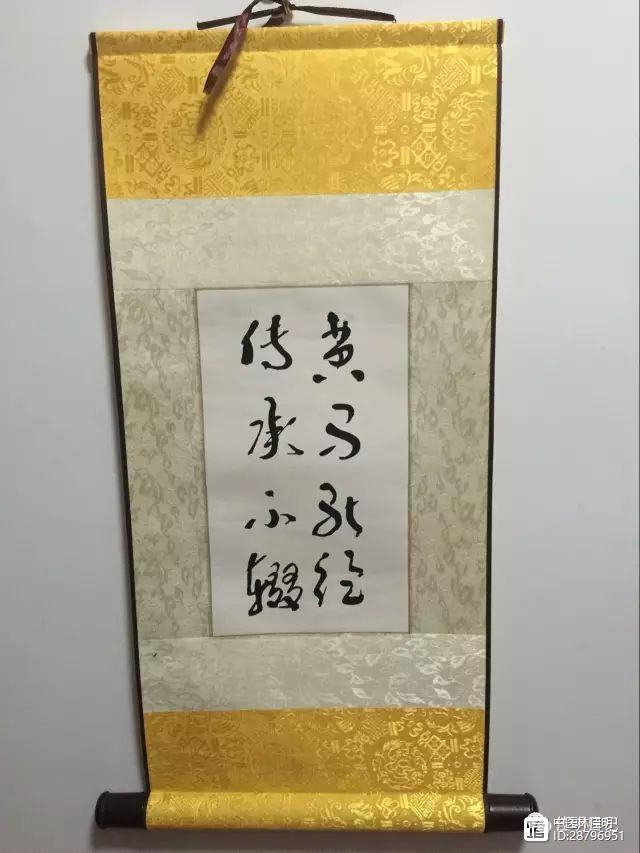 黄经
传承不辍
中医林佳明
ID:28796951